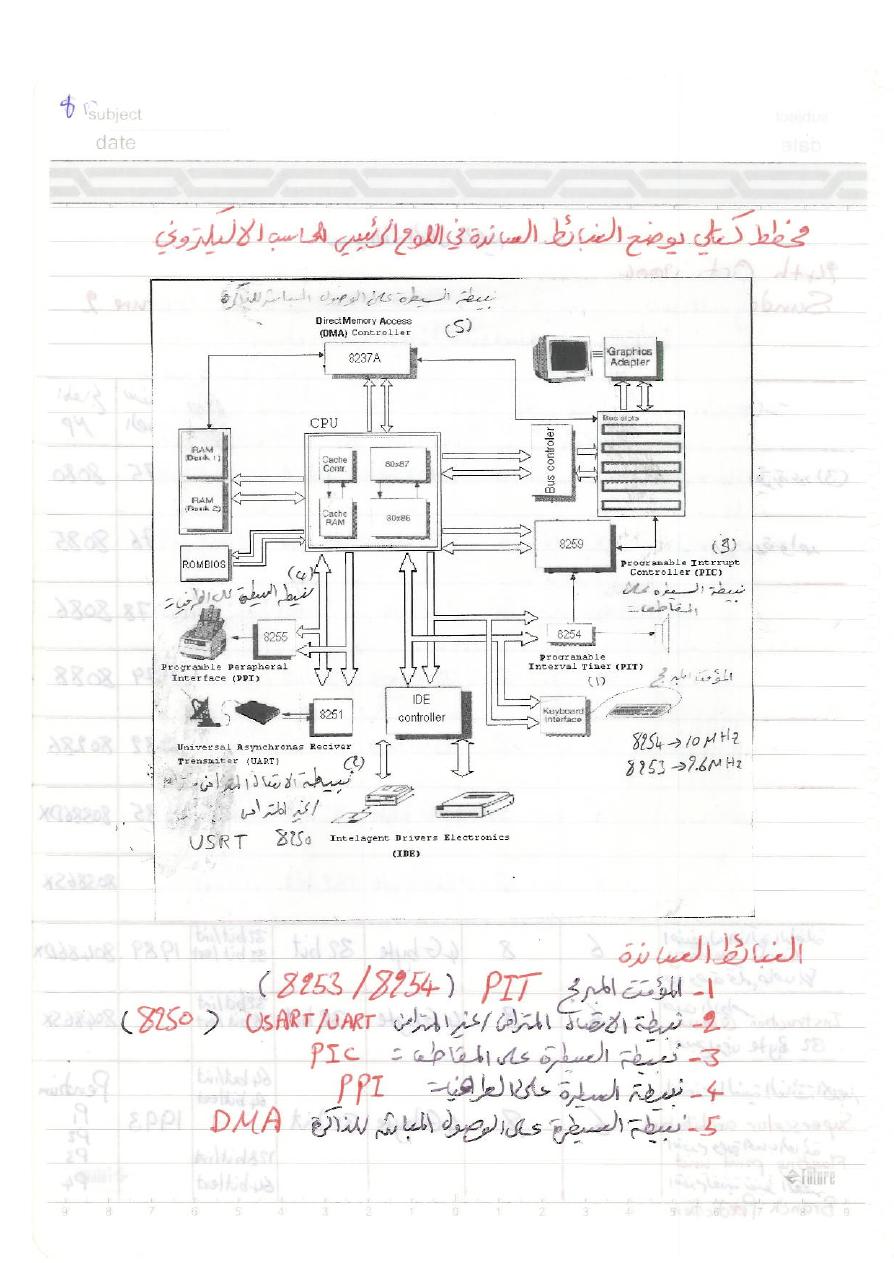 8
subject
date
مخطط كتلي يوضح النبائط الساندة في اللوح الرئيسي للحاسب الاليكتروني
نبيطة السيطرة على الوصول المباشر للذاكرة
Direct Memory Access
(DMA) Controller
(5)
8237A
Graphics
Adapter
CPU
Bus slots
RAM
(Bank 1)
RAM
(Bank 2)
Cache
Contr.
80x87
Cache
RAM
80x86
Bus controler
8259
(3)
Programable Intrrupt
Controller (PIC)
نبيطة السيطرة على
المقاطعات
ROMBIOS
(4)
نبيطة السيطرة على الطرفيات
8255
Programble Perapheral
Interface (PPI)
8254
Programable
Interval Timer (PIT)
(1)
المؤقت المبرمج
IDE
controller
Keyboard
Interface
8251
Universal Asynchronas Reciver
Trensmiter (UART)
(2)
نبيطة الاتصال المتزامن
/غير المتزامن
USRT 8250
8254 → 10 MHz
8253 → 2.6 MHz
Intelagent Drivers Electronics
(IDE)
النبائط الساندة
1- المؤقت المبرمج PIT (8253/8254)
2- نبيطة الاتصال المتزامن/غير المتزامن USART/UART (8250)
3- نبيطة السيطرة على المقاطعات PIC
4- نبيطة السيطرة على الطرفيات PPI
5- نبيطة السيطرة على الوصول المباشر للذاكرة DMA
Future
9 8 7 6 5 4 3 2 1 0 1 2 3 4 5 6 7 8 9